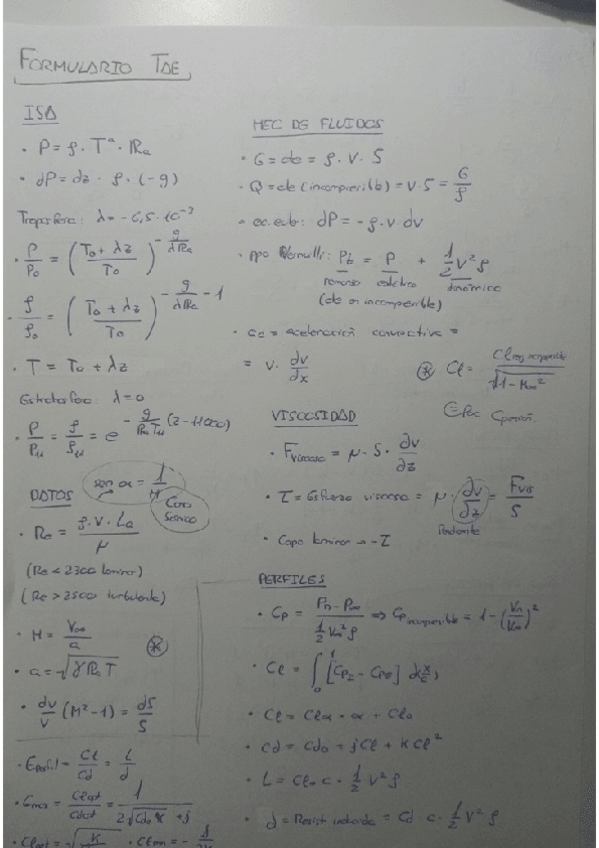 FORMULARIO TAE
ISA
· P = ρ · Tª · Ra
· dP = dz · ρ · (-g)
Troposfera: λ = -6,5 · 10⁻³
· P/P₀ = ((T₀ + λz)/T₀)^(-g/(λRa))
· ρ/ρ₀ = ((T₀ + λz)/T₀)^(-g/(λRa) - 1)
· T = T₀ + λz
Estratosfera: λ = 0
· P/P₁₁ = ρ/ρ₁₁ = e^(-g/(Ra T₁₁) (z - 11000))
sen α = 1/M
Cono
Sónico
DATOS
· Re = ρ · V · La / μ
(Re < 2300 laminar)
(Re > 2500 turbulento)
· M = V∞/a
⊛
· a = √(γ Ra T)
· dv/v (M² - 1) = dS/S
· Eperfil = Cl/Cd = L/d
· Emax = Clopt/Cdopt = 1/(2√(Cd₀ K) + j)
MEC DE FLUIDOS
· G = cte = ρ · V · S
· Q = cte (incompresible) = V · S = G/ρ
· ec. eule: dP = -ρ · v · dv
· Ppo Bernulli: Pt = P + ½ V² ρ
remanso estática dinámica
(cte en incompresible)
· ac = aceleración convectiva =
= V · dv/dx
⊛ Cl = Cl incompresible / √(1 - M∞²)
VISCOSIDAD
· Fviscosa = μ · S · ∂v/∂z
· τ = Esfuerzo viscoso = μ · ∂v/∂z = Fvis/S
Pendiente
· Capa laminar → -τ
PERFILES
· Cp = (Pn - P∞)/(½ V∞² ρ) ⇒ Cp incompresible = 1 - (Vn/V∞)²
· Cl = ∫₀¹ [CpI - CpE] d(x/c)
· Cl = Clα · α + Cl₀
· Cd = Cd₀ + jCl + KCl²
· L = Cl · c · ½ V² ρ
· d = Resist inducida = Cd · c · ½ V² ρ